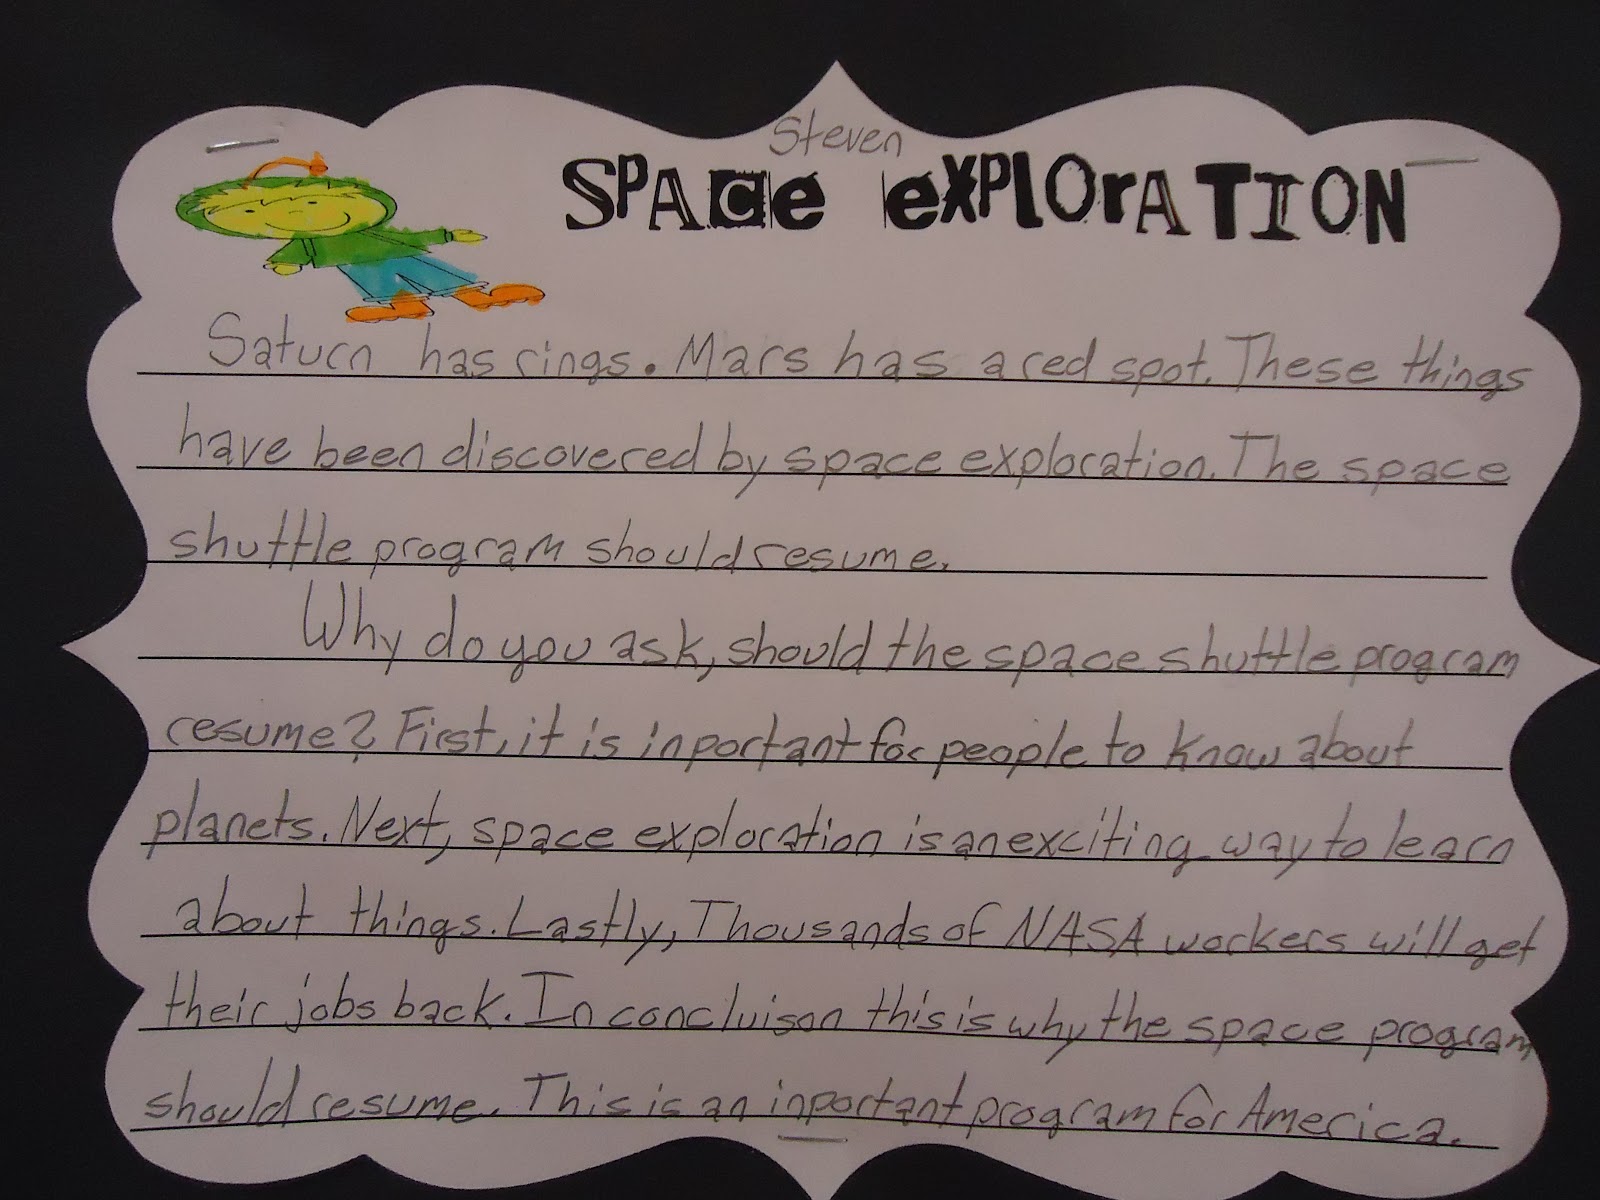 Steven
SPACe eXPlOrATION
Saturn has rings. Mars has a red spot. These things
have been discovered by space exploration. The space
shuttle program should resume.
Why do you ask, should the space shuttle program
resume? First, it is inportant for people to know about
planets. Next, space exploration is an exciting way to learn
about things. Lastly, Thousands of NASA workers will get
their jobs back. In concluison this is why the space program
should resume. This is an inportant program for America.